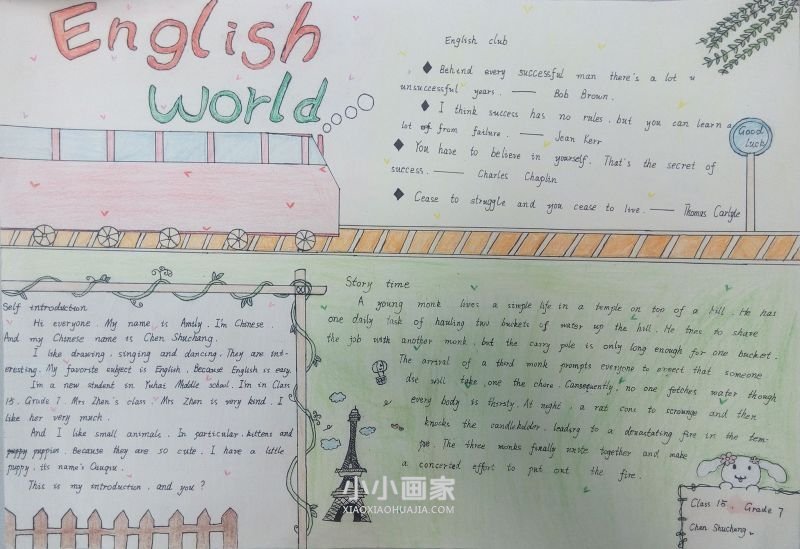 English
World
English club
◆ Behind every successful man there's a lot u
unsuccessful years. —— Bob Brown.
◆ I think success has no rules. but you can learn a
lot of from failure. —— Jean Kerr
◆ You have to believe in yourself. That's the secret of
success. —— Charles Chaplin
◆ Cease to struggle and you cease to live. —— Thomas Carlyle
Good
luck
Self introduction
Hi everyone. My name is Amily. I'm Chinese.
And my Chinese name is Chen Shuchang.
I like drawing. singing and dancing. They are int-
eresting. My favorite subject is English. Because English is easy.
I'm a new student in Yuhai Middle school. I'm in Class
15. Grade 7. Mrs Zhen's class. Mrs Zhen is very kind. I
like her very much.
And I like small animals. In particular. kittens and
puppy puppies. Because they are so cute. I have a little
puppy. its name's
This is my introduction. and you?
Story time
A young monk lives a simple life in a temple on top of a hill. He has
one daily task of hauling two buckets of water up the hill. He tries to share
the job with another monk. but the carry pole is only long enough for one bucket.
The arrival of a third monk prompts everyone to expect that someone
else will take one the chore. Consequently, no one fetches water though
every body is thirsty. At night. a rat cons to scrounge and then
knocks the candleholder. leading to a devastating fire in the tem-
ple. The three monks finally unite together and make
a concerted effort to put out the fire.
小小画家
XIAOXIAOHUAJIA.COM
Class 15. Grade 7
Chen Shuchang.